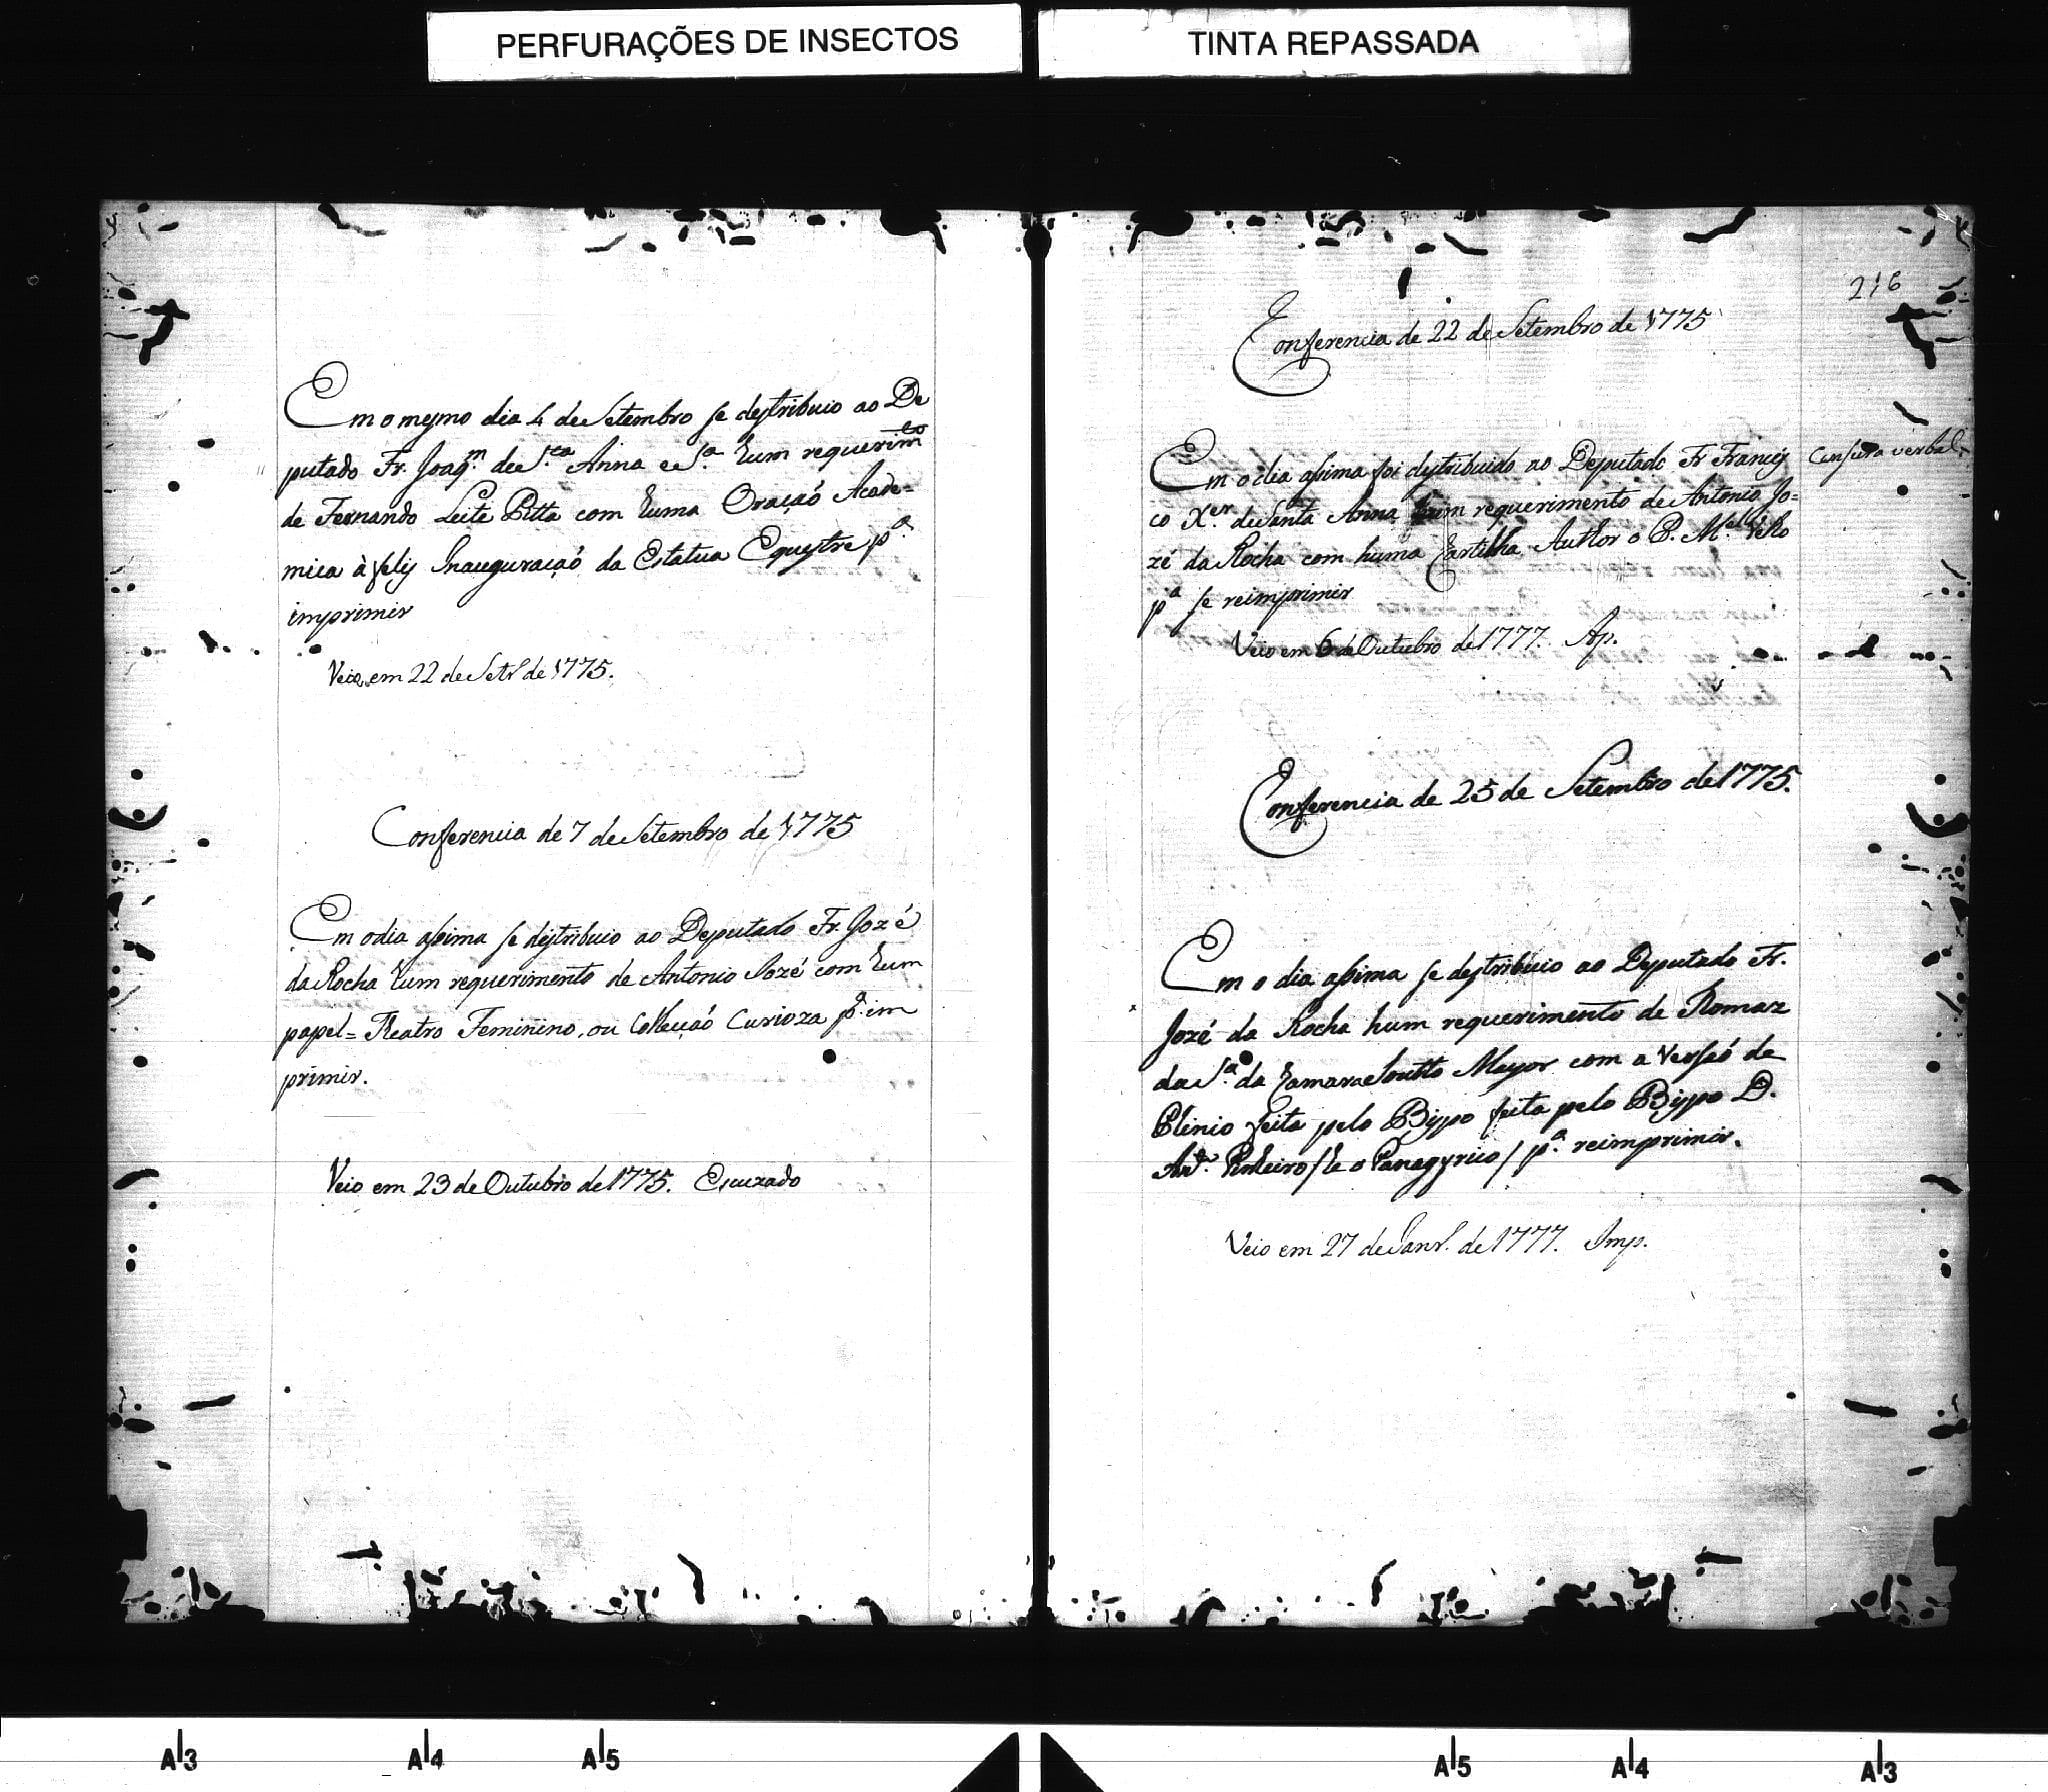 PERFURAÇÕES DE INSECTOS
TINTA REPASSADA
Em o mesmo dia 4 de Setembro se destribuio ao De
putado Fr. Joaq.m de S.ta Anna e S.a hum requerim.to
de Fernando Leite Pitta com huma Oração Acade=
mica à felis Inauguração da Estatua Equestre p.a
imprimir
Veio em 22 de Setr de 1775.
Conferencia de 7 de Setembro de 1775
Em o dia assima se destribuio ao Deputado Fr. Jozé
da Rocha hum requerimento de Antonio Jozé com hum
papel = Theatro Feminino, ou Collecção Curioza p.a im
primir.
Veio em 23 de Outubro de 1775. Escuzado
216
Conferencia de 22 de Setembro de 1775
Em o dia assima foi destribuido ao Deputado Fr Francis
Censura verbal.
co X.er de Santa Anna hum requerimento de Antonio Jo=
zé da Rocha com huma Cartilha Author o P. M.el
p.a se reimprimir
Veio em 6 de Outubro de 1777. Ap.
Conferencia de 25 de Setembro de 1775.
Em o dia assima se destribuio ao Deputado Fr.
Jozé da Rocha hum requerimento de Romaz
da S.a da Camara Soutto Mayor com a Versão de
Plinio feita pelo Bispo feita pelo Bispo D.
Pinheiro / he o Panegyrico / p.a reimprimir.
Veio em 27 de Janr. de 1777. Imp.
A3 A4 A5
A5 A4 A3